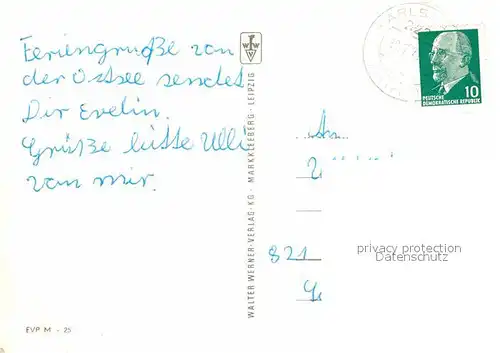 Feriengrüße von
der Ostsee sendet
Dir Evelin.
Grüße bitte Ulli
von mir.
EVP M - 25
WALTER WERNER-VERLAG·KG · MARKKLEEBERG · LEIPZIG
10
DEUTSCHE
DEMOKRATISCHE REPUBLIK
An
821
privacy protection
Datenschutz